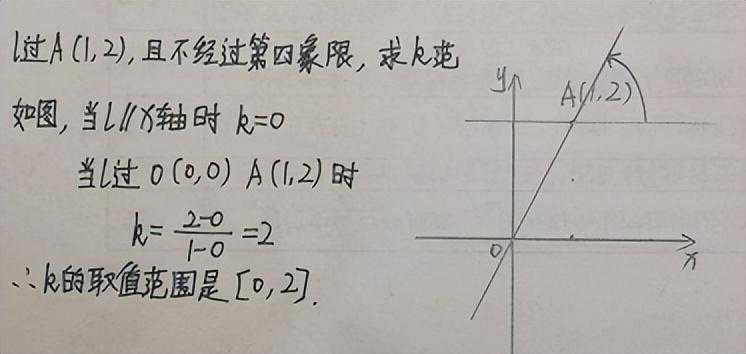 l过A(1,2),且不经过第四象限,求k范
如图,当l∥x轴时 k=0
当l过 O(0,0) A(1,2)时
k=\frac{2-0}{1-0}=2
∴k的取值范围是[0,2].
y
A(1,2)
O
x